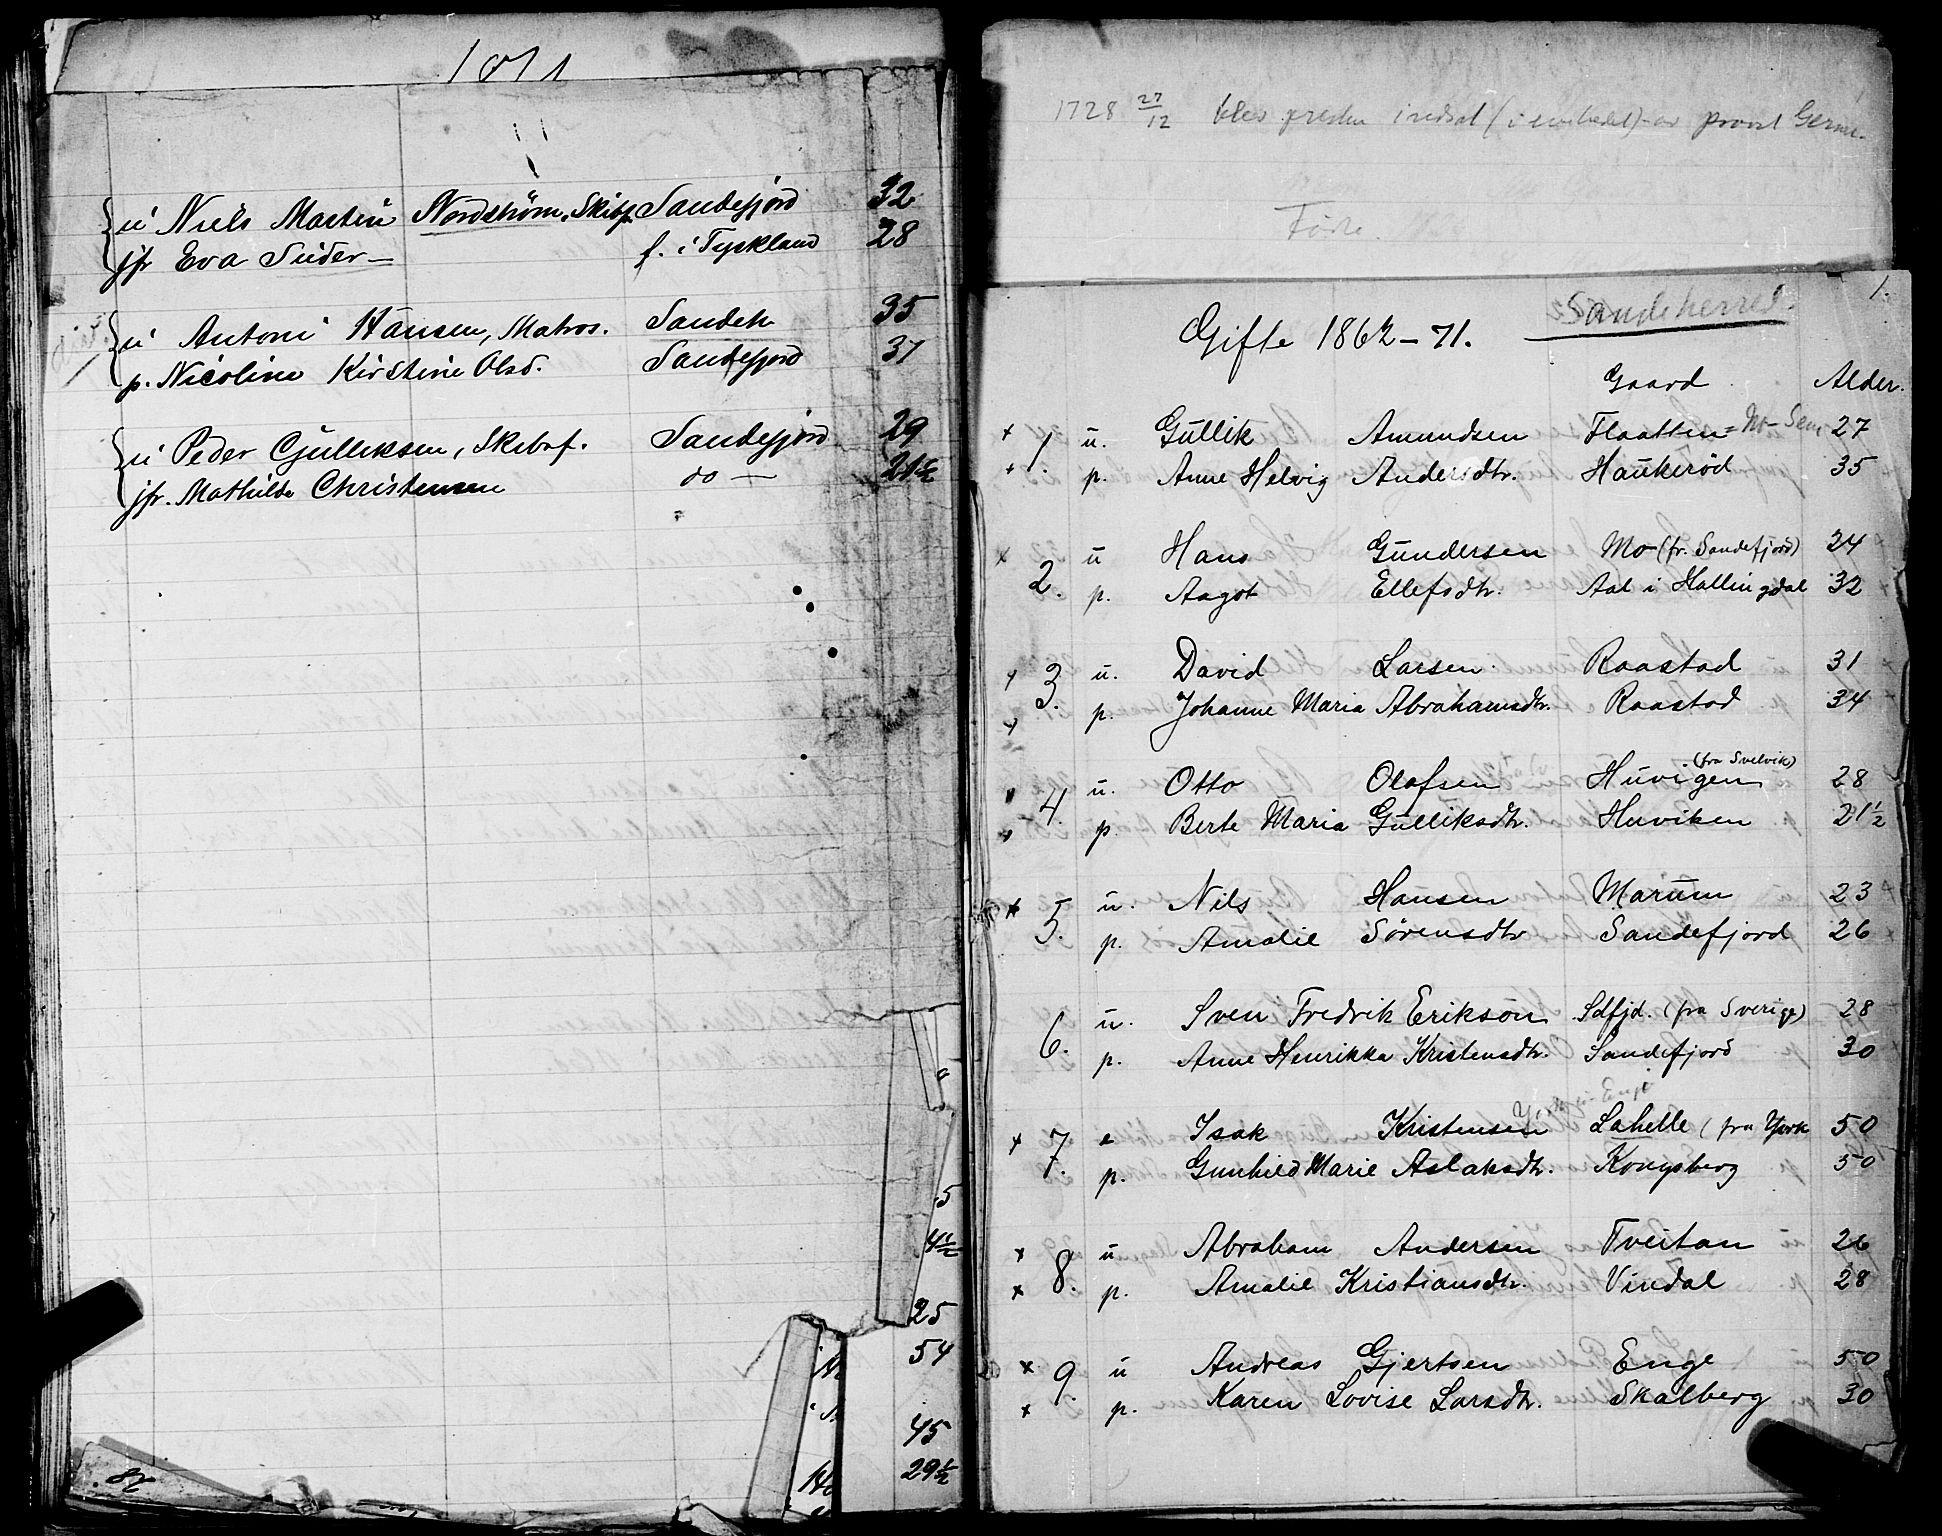 1871
ú Niels Martin Nordstrøm, Skibsf. Sandefjord 32
jfr Eva Suder — f. i Tyskland 28
ú Antoni Hansen, Matros. Sandeh 35
p. Nicoline Kirstine Olsd. Sandefjord 37
ú Peder Gulliksen, Skibsf. Sandefjord 29
jfr. Mathilde Christensen do — 21½
5
4½
25
54
45
29½
1728 27/12 blev presten indsat av provst
Gifte 1862–71. Sandeherred. 1.
Gaard Alder.
1. u. Gullik Amundsen Flaatten = Mo – Sem 27
p. Anne Helvig Andersdtr. Haukerød 35
2. u Hans Gundersen Mo (fr. Sandefjord) 24
p. Aagot Ellefsdtr. Aal i Hallingdal 32
3. u. David Larsen Raastad 31
p. Johanne Maria Abrahamsdtr. Raastad 34
4. u. Otto Olafsen Huvigen (fra Svelvik) 28
p Berte Maria Gulliksdtr. Huviken 21½
5. u. Nils Hansen Marum 23
p. Amalie Sørensdtr Sandefjord 26
6. u. Sven Fredrik Erikson Sdfjd. (fra Sverige) 28
p. Anne Henrikka Kristensdtr. Sandefjord 30
York i Engl
7. e Isak Kristensen Lahelle (fra York 50
p. Gunhild Marie Aslaksdtr. Kongsberg 50
8. u Abraham Andersen Tveitan 26
p. Amalie Kristiansdtr. Vindal 28
9. u Andreas Gjertsen Enge 50
p. Karen Lovise Larsdtr. Skalberg 30